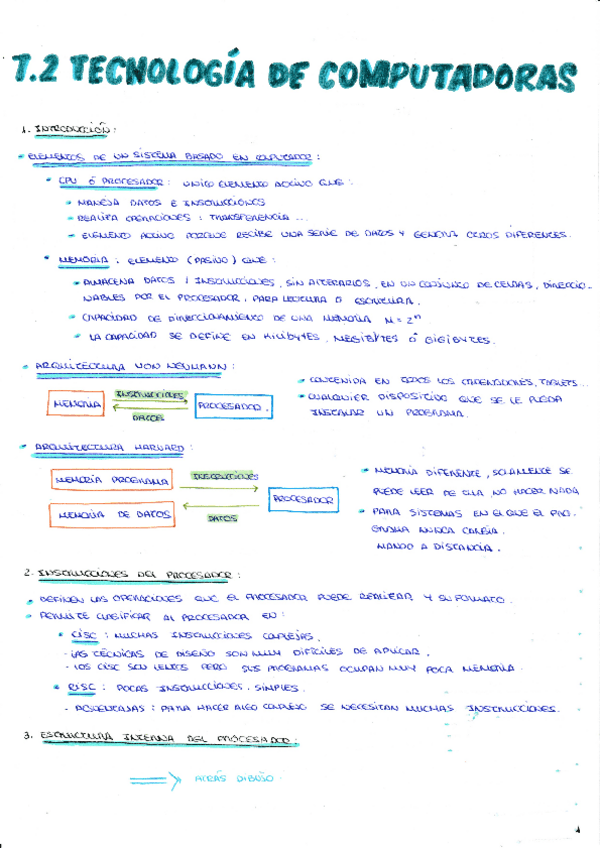 T.2 TECNOLOGÍA DE COMPUTADORAS
1. INTRODUCCIÓN:
- ELEMENTOS DE UN SISTEMA BASADO EN COMPUTADOR:
• CPU Ó PROCESADOR: UNICO ELEMENTO ACTIVO QUE:
- MANEJA DATOS E INSTRUCCIONES
- REALIZA OPERACIONES: TRANSFERENCIA...
- ELEMENTO ACTIVO PORQUE RECIBE UNA SERIE DE DATOS Y GENERA OTROS DIFERENTES.
• MEMORIA: ELEMENTO (PASIVO) QUE:
• ALMACENA DATOS / INSTRUCCIONES, SIN ALTERARLOS, EN UN CONJUNTO DE CELDAS, DIRECCIO-
NABLES POR EL PROCESADOR, PARA LECTURA O ESCRITURA.
• CAPACIDAD DE DIRECCIONAMIENTO DE UNA MEMORIA M = 2ⁿ
• LA CAPACIDAD SE DEFINE EN KILIBYTES, MEGIBYTES Ó GIGIBYTES.
- ARQUITECTURA VON NEUMANN:
MEMORIA
INSTRUCCIONES
DATOS
PROCESADOR.
• CONTENIDA EN TODOS LOS ORDENADORES, TABLETS...
• CUALQUIER DISPOSITIVO QUE SE LE PUEDA
INSTALAR UN PROGRAMA.
- ARQUITECTURA HARVARD:
MEMORIA PROGRAMA
INSTRUCCIONES
MEMORIA DE DATOS
DATOS
PROCESADOR
• MEMORIA DIFERENTE, SOLAMENTE SE
PUEDE LEER DE ELLA NO HACER NADA
• PARA SISTEMAS EN EL QUE EL PRO-
GRAMA NUNCA CAMBIA.
MANDO A DISTANCIA.
2. INSTRUCCIONES DEL PROCESADOR:
• DEFINEN LAS OPERACIONES QUE EL PROCESADOR PUEDE REALIZAR Y SU FORMATO.
• PERMITE CLASIFICAR AL PROCESADOR EN:
• CISC: MUCHAS INSTRUCCIONES COMPLEJAS.
- LAS TÉCNICAS DE DISEÑO SON MUY DIFÍCILES DE APLICAR.
- LOS CISC SON LENTOS PERO SUS PROGRAMAS OCUPAN MUY POCA MEMORIA.
• RISC: POCAS INSTRUCCIONES, SIMPLES.
- DESVENTAJAS: PARA HACER ALGO COMPLEJO SE NECESITAN MUCHAS INSTRUCCIONES.
3. ESTRUCTURA INTERNA DEL PROCESADOR:
⇒ ATRÁS DIBUJO.
1